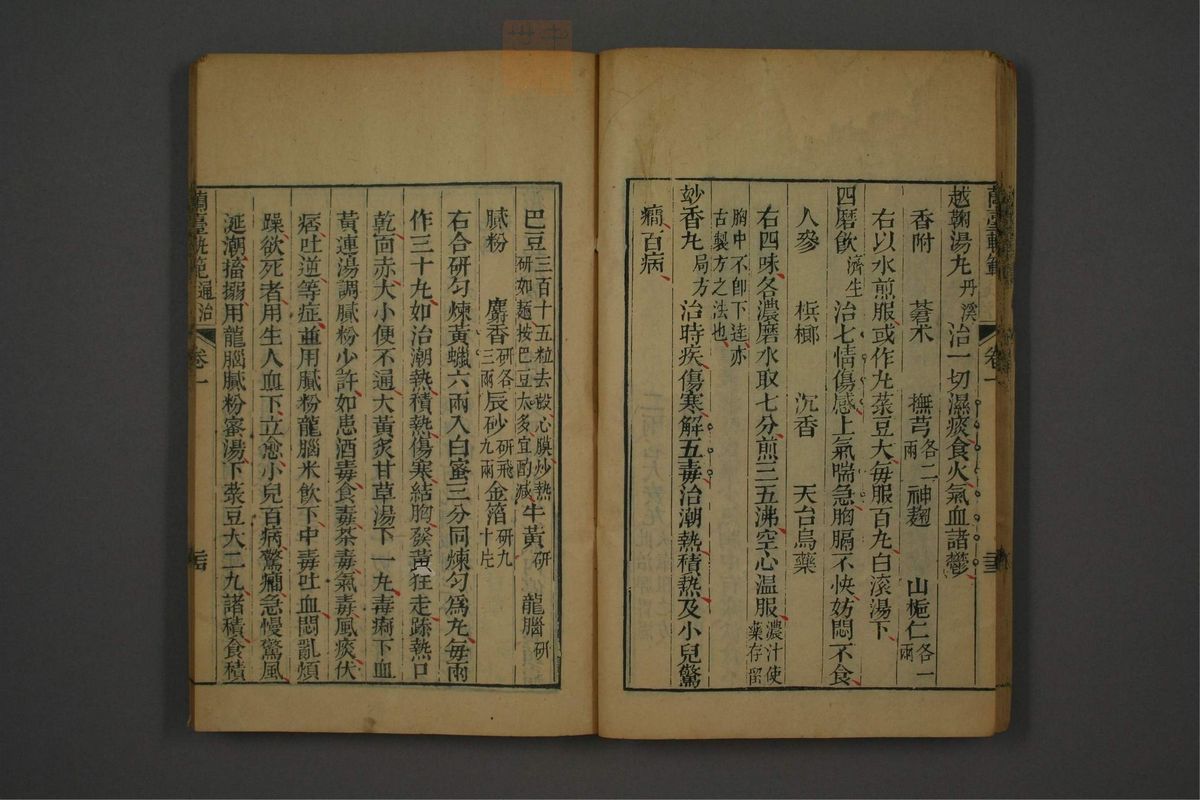 蘭臺軌範 卷一 三
越鞠湯丸丹溪 治一切濕痰食火氣血諸鬱
香附 蒼朮 撫芎各二兩 神麯 山梔仁各一兩
右以水煎服或作丸菉豆大每服百丸白滾湯下
四磨飲濟生 治七情傷感上氣喘急胸膈不快妨悶不食
人參 檳榔 沉香 天台烏藥
右四味各濃磨水取七分煎三五沸空心温服濃汁使藥存留
胸中不卽下達亦古製方之法也
妙香丸局方 治時疾傷寒解五毒治潮熱積熱及小兒驚
癇百病
巴豆三百十五粒去殼心膜炒熱研如麵按巴豆太多宜酌減 牛黃研 龍腦研
膩粉 麝香研各三兩 辰砂研飛九兩 金箔研九十片
右合研勻煉黃蠟六兩入白蜜三分同煉勻爲丸每兩
作三十丸如治潮熱積熱傷寒結胸發黃狂走躁熱口
乾面赤大小便不通大黃炙甘草湯下一丸毒痢下血
黃連湯調膩粉少許如患酒毒食毒茶毒氣毒風痰伏
痞吐逆等症並用膩粉龍腦米飲下中毒吐血悶亂煩
躁欲死者用生人血下立愈小兒百病驚癇急慢驚風
涎潮搐搦用龍腦膩粉蜜湯下菉豆大二丸諸積食積
蘭臺軌範 通治 卷一